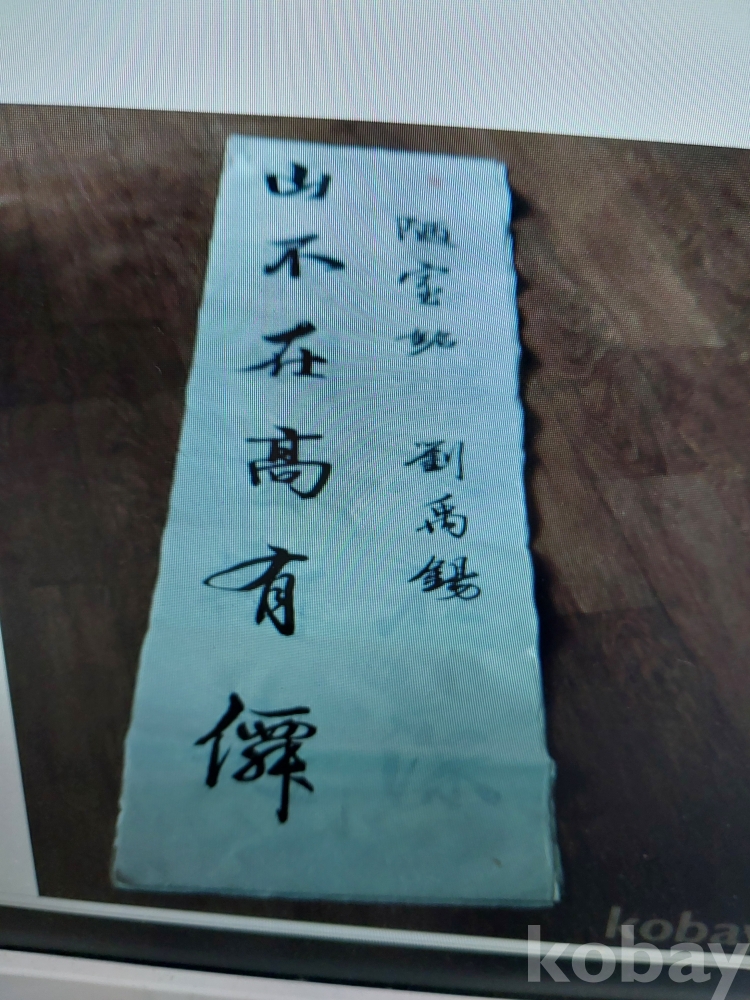 陋室銘 劉禹錫
山不在高有僊
kobay
kobay